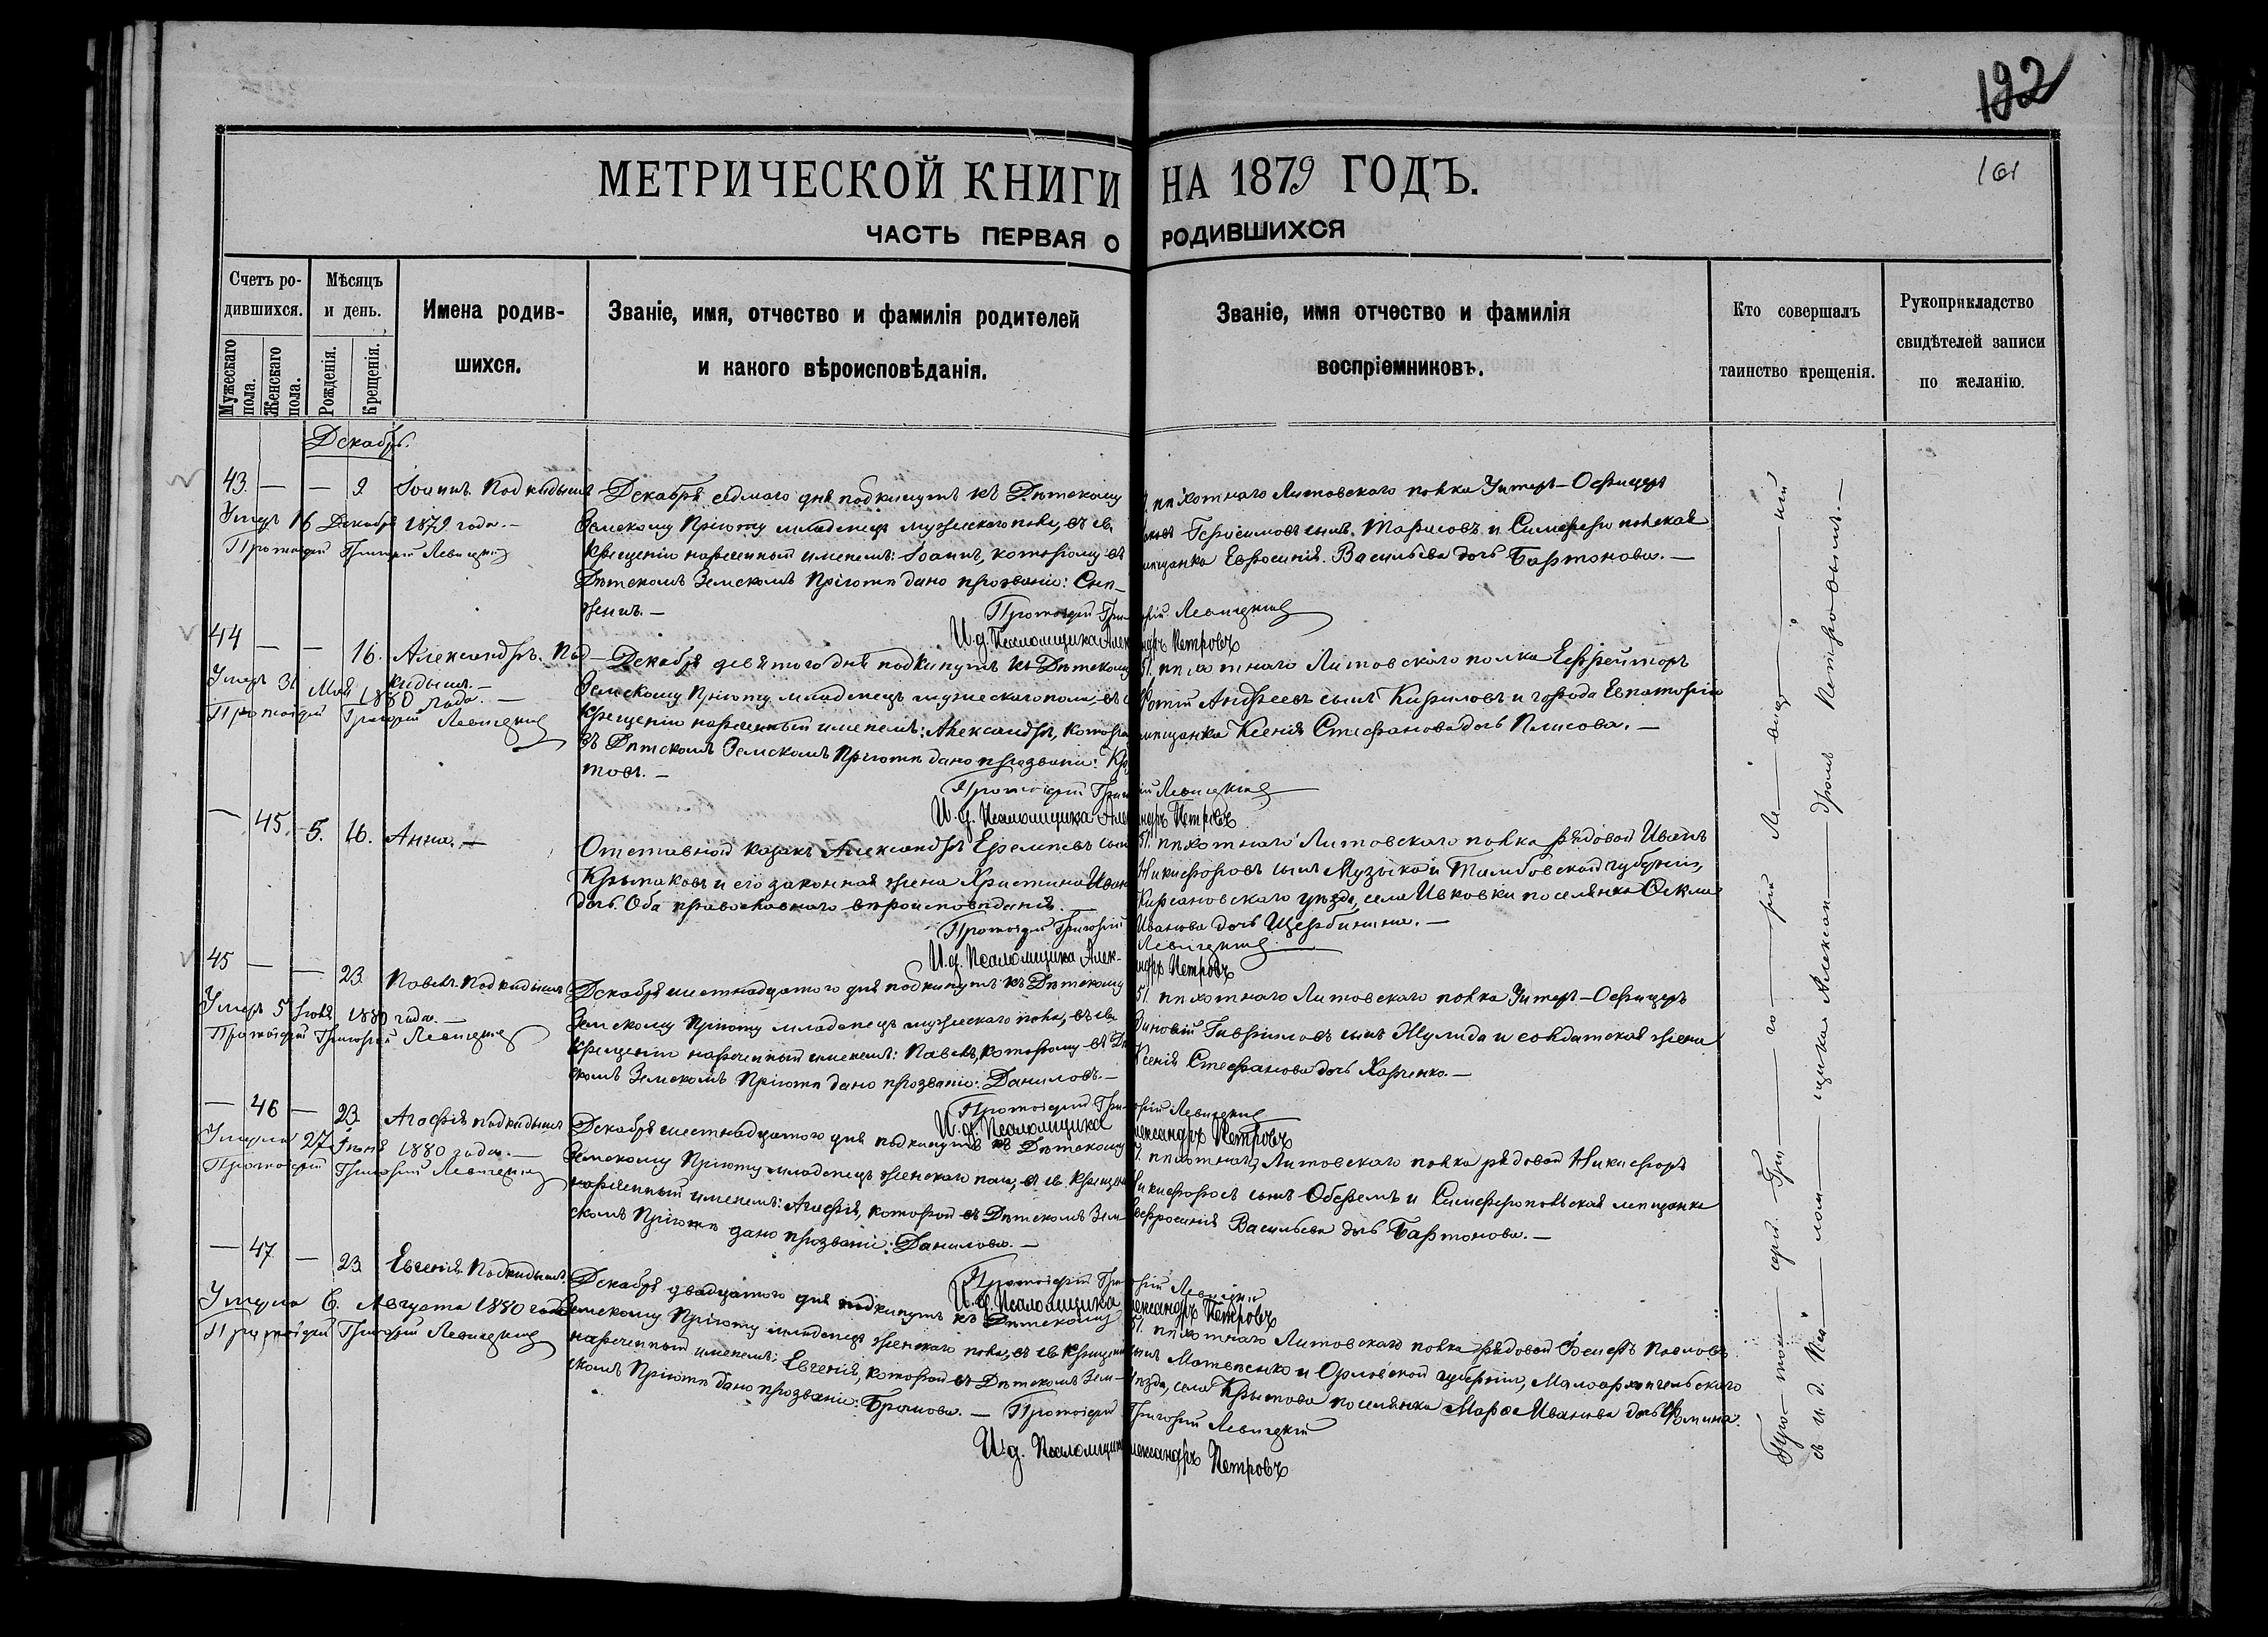 192
161
МЕТРИЧЕСКОЙ КНИГИ НА 1879 ГОДЪ.
ЧАСТЬ ПЕРВАЯ О РОДИВШИХСЯ
Счетъ ро-
дившихся.
Мужескаго пола.
Женскаго пола.
Мѣсяцъ
и день.
Рожденія.
Крещенія.
Имена родив-
шихся.
Званіе, имя, отчество и фамилія родителей
и какого вѣроисповѣданія.
Званіе, имя отчество и фамилія
воспріемниковъ.
Кто совершалъ
таинство крещенія.
Рукоприкладство
свидѣтелей записи
по желанію.
Декабрь.
43. — — 9. Іоаннъ. Подкидышъ
Умеръ 16 Декабря 1879 года. —
Протоіерей Григорій Левицкій
Декабря седмаго дня подкинутъ къ Дѣтскому
Земскому Пріюту младенецъ мужескаго пола, въ св.
Крещеніи нареченный именемъ: Іоаннъ, которому въ
Дѣтскомъ Земскомъ Пріютѣ дано прозваніе:
пѣхотнаго Литовскаго полка Унтеръ-Офицеръ
Герасимовъ сынъ Тарасовъ и Симферопольская
мѣщанка Евфросинія Васильева дочь Бартонова. —
Протоіерей Григорій Левицкій
И.д. Псаломщика Александръ Петровъ
44 — — 16. Александръ. Под-
кидышъ. —
Умеръ 31 Мая 1880 года. —
Протоіерей Григорій Левицкій
Декабря девятого дня подкинутъ къ Дѣтскому
Земскому Пріюту младенецъ мужескаго пола, въ
Крещеніи нареченный именемъ: Александръ,
въ Дѣтскомъ Земскомъ Пріютѣ дано прозваніе:
товъ. —
51. пѣхотнаго Литовскаго полка Ефрейторъ
Фотій Андреевъ сынъ Кириловъ и города Евпаторіи
мѣщанка Ксенія Стефанова дочь Плисова. —
Протоіерей Григорій Левицкій
И.д. Псаломщика Александръ Петровъ
— 45. 5. 16. Анна. —
Отставной казакъ Александръ Еремѣевъ сынъ
Крымаковъ и его законная жена Христина
дочь. Оба православнаго вѣроисповѣданія.
51. пѣхотнаго Литовскаго полка рядовой Иванъ
Никифоровъ сынъ Музыка и Тамбовской губерніи,
Кирсановскаго уѣзда, села Ивковки поселянка
Иванова дочь Щербинина. —
Протоіерей Григорій Левицкій
И.д. Псаломщика Александръ Петровъ
45 — — 23 Павелъ. Подкидышъ
Умеръ 5 1880 года. —
Протоіерей Григорій Левицкій
Декабря шестнадцатого дня подкинутъ къ Дѣтскому
Земскому Пріюту младенецъ мужескаго пола, въ св.
Крещеніи нареченный именемъ: Павелъ, которому въ Дѣт
скомъ Земскомъ Пріютѣ дано прозваніе: Даниловъ. —
51. пѣхотнаго Литовскаго полка Унтеръ-Офицеръ
Зиновій Гавриловъ сынъ Жулида и солдатская жена
Ксенія Стефанова дочь Харченко. —
Протоіерей Григорій Левицкій
И.д. Псаломщика Александръ Петровъ
— 46 — 23 Агафія подкидышъ
Умерла 27 Іюня 1880 года. —
Протоіерей Григорій Левицкій
Декабря шестнадцатого дня подкинутъ къ Дѣтскому
Земскому Пріюту младенецъ женскаго пола, въ св. Крещеніи
нареченный именемъ: Агафія, которой въ Дѣтскомъ Зем-
скомъ Пріютѣ дано прозваніе: Данилова. —
пѣхотнаго Литовскаго полка рядовой Никифоръ
Никифоровъ сынъ и Симферопольская мѣщанка
Евфросинія Васильева дочь Бартонова. —
Протоіерей Григорій Левицкій
И.д. Псаломщика Александръ Петровъ
— 47 — 23 Евгенія. Подкидышъ.
Умерла 6. Августа 1880 года
Протоіерей Григорій Левицкій
Декабря двадцатого дня подкинутъ къ Дѣтскому
Земскому Пріюту младенецъ женскаго пола, въ св. Крещеніи
нареченный именемъ: Евгенія, которой въ Дѣтскомъ Зем-
скомъ Пріютѣ дано прозваніе:
51. пѣхотнаго Литовскаго полка рядовой Павловъ
сынъ Матвѣенко и Орловской губерніи, Малоархангельскаго
уѣзда, села поселянка Марфа Иванова дочь
Протоіерей Григорій Левицкій
И.д. Псаломщика Александръ Петровъ
Про—тоі—ерей Гри—го—рій Ле—виц—кій
съ и. д. Пса—лом—щика Алексан—дромъ Петровымъ. —